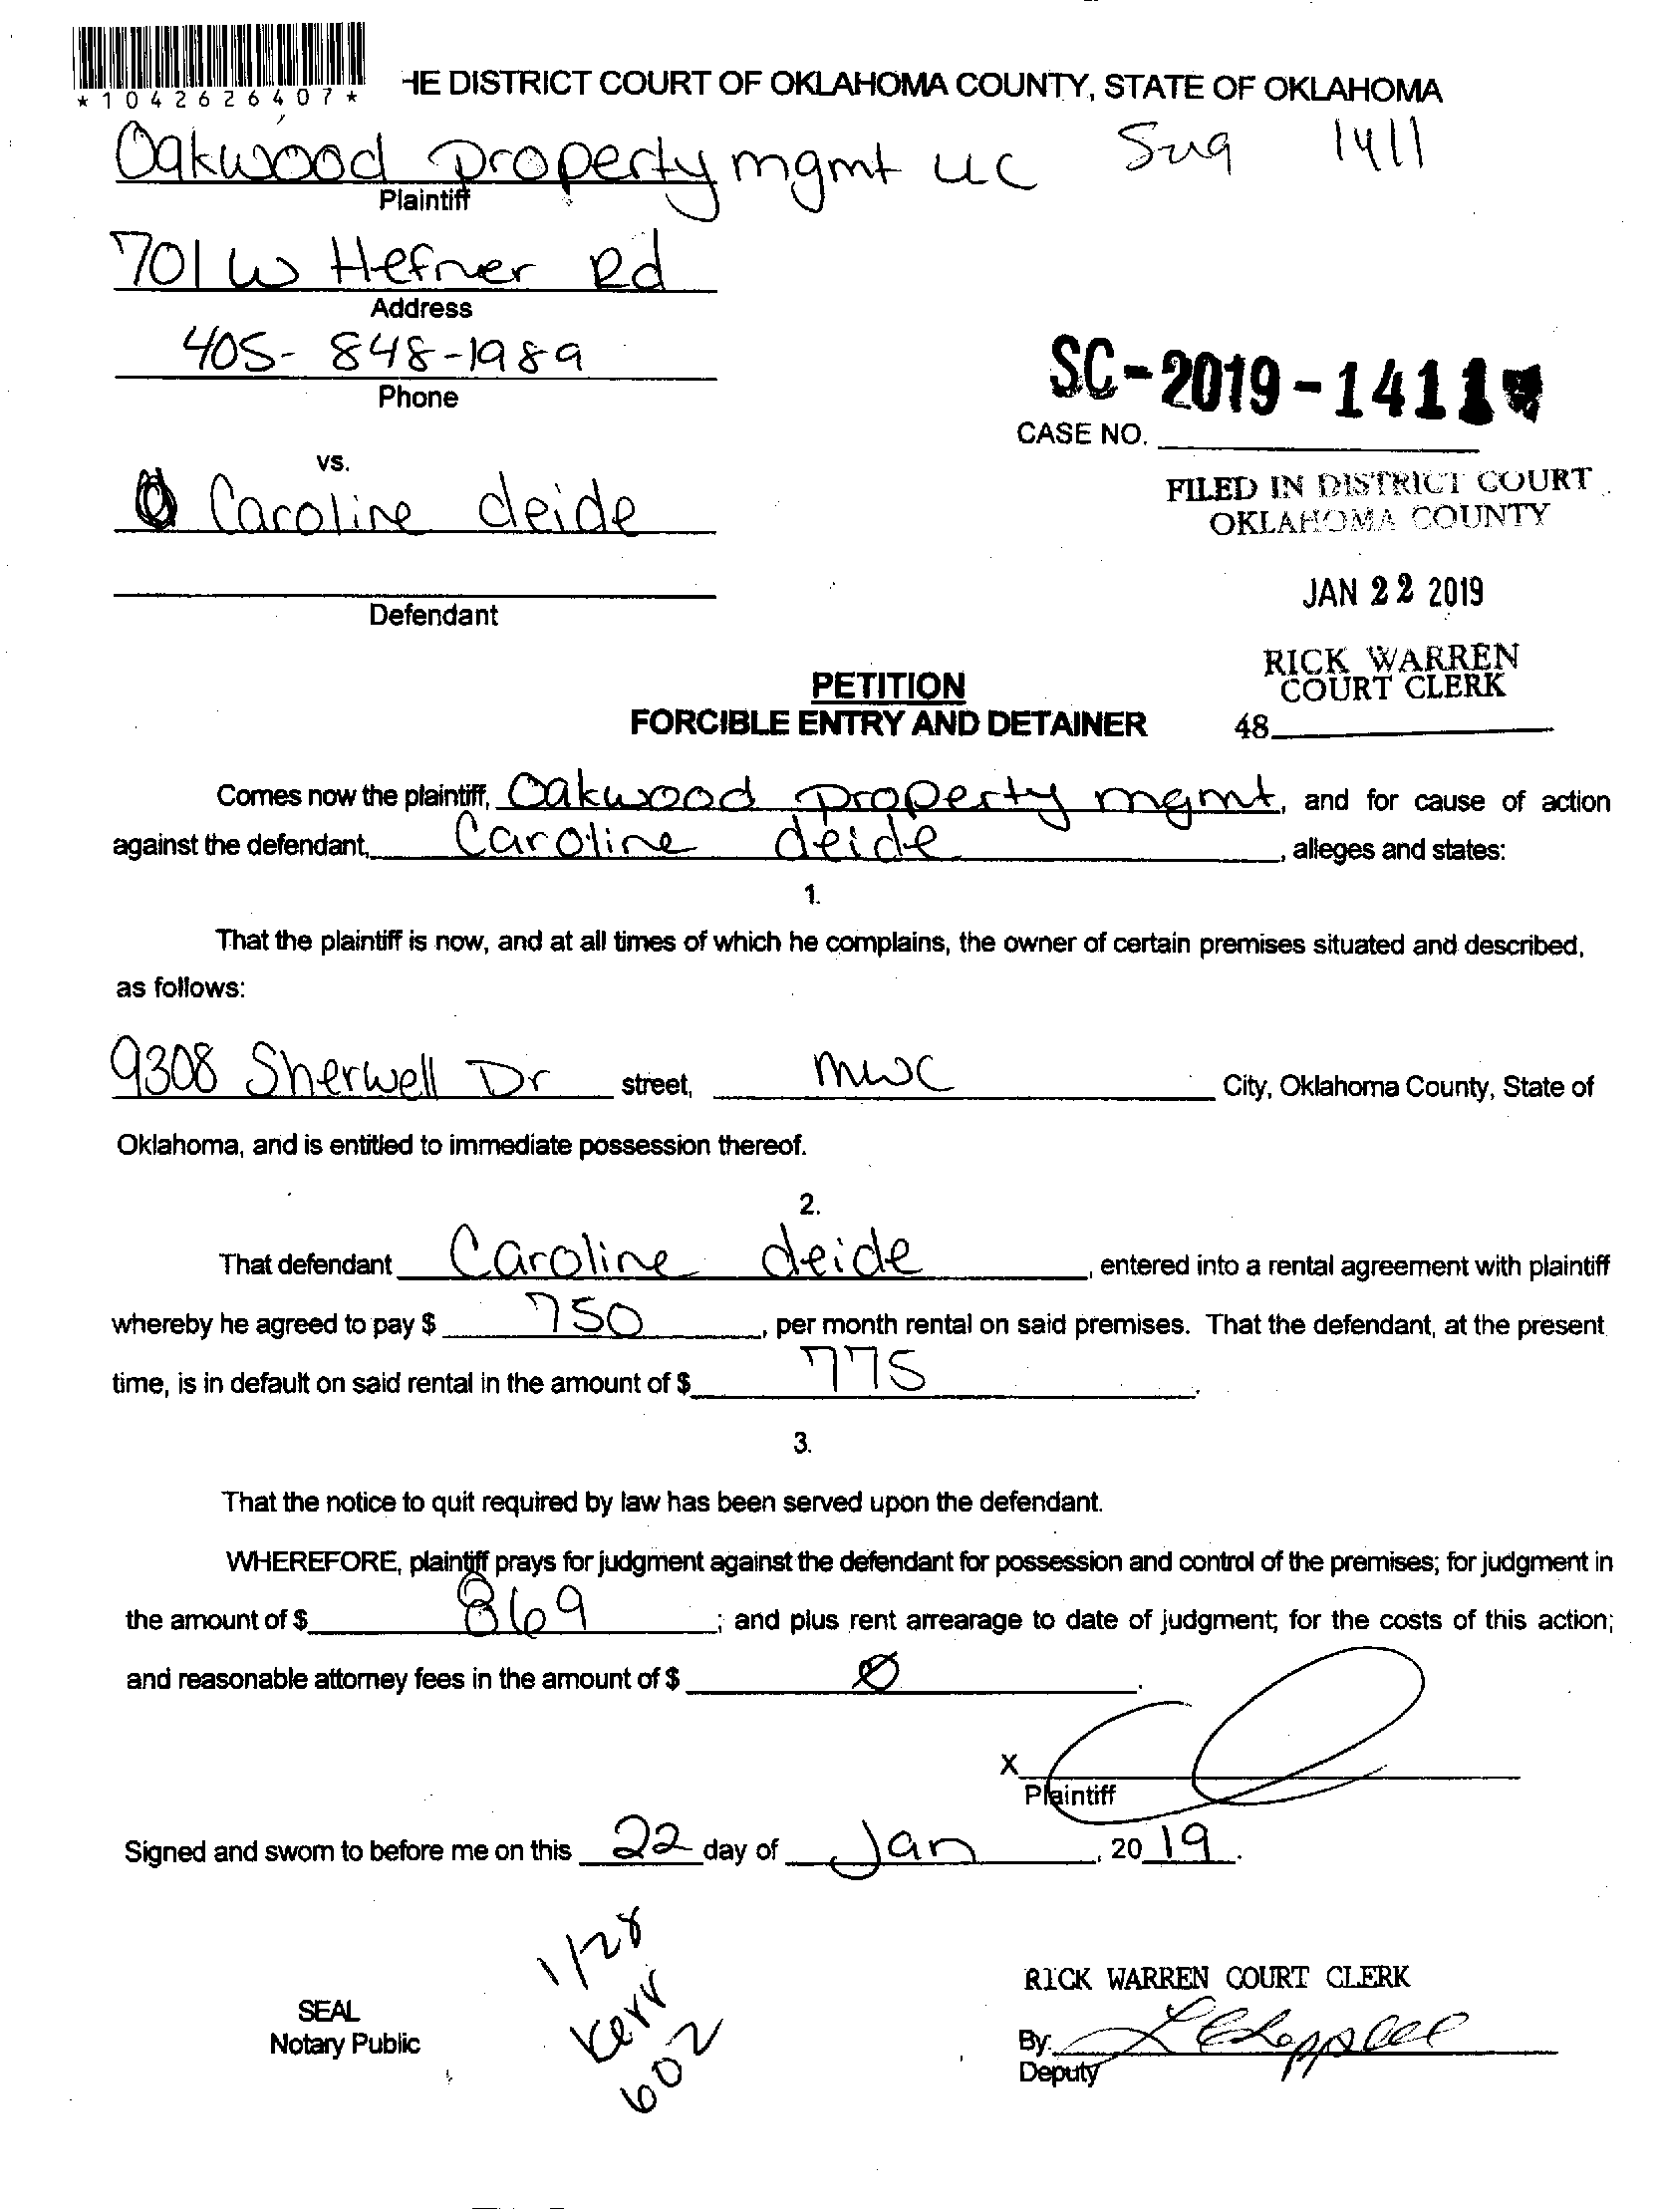 *1042626407*
HE DISTRICT COURT OF OKLAHOMA COUNTY, STATE OF OKLAHOMA
Oakwood property mgmt LLC 1411
Plaintiff
701 W Hefner Rd
Address
405-848-1989
Phone
SC-2019-1411
CASE NO.
vs.
Caroline deide
FILED IN DISTRICT COURT
OKLAHOMA COUNTY
JAN 22 2019
Defendant
RICK WARREN
COURT CLERK
PETITION
FORCIBLE ENTRY AND DETAINER 48
Comes now the plaintiff, Oakwood property mgmt, and for cause of action
against the defendant, Caroline deide, alleges and states:
1.
That the plaintiff is now, and at all times of which he complains, the owner of certain premises situated and described,
as follows:
9308 Sherwell Dr street, mwc City, Oklahoma County, State of
Oklahoma, and is entitled to immediate possession thereof.
2.
That defendant Caroline deide, entered into a rental agreement with plaintiff
whereby he agreed to pay $ 750, per month rental on said premises. That the defendant, at the present
time, is in default on said rental in the amount of $ 775.
3.
That the notice to quit required by law has been served upon the defendant.
WHEREFORE, plaintiff prays for judgment against the defendant for possession and control of the premises; for judgment in
the amount of $ 869; and plus rent arrearage to date of judgment; for the costs of this action;
and reasonable attorney fees in the amount of $ 0.
X
Plaintiff
Signed and sworn to before me on this 22 day of Jan, 2019.
1/28
Kerr
602
SEAL
Notary Public
RICK WARREN COURT CLERK
By:
Deputy